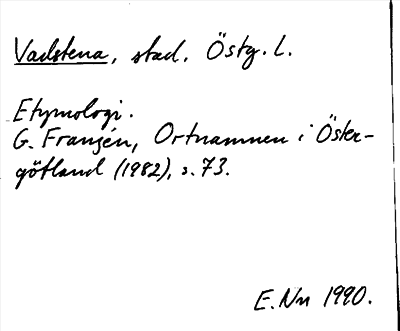 Vadstena, stad, Östg. L.
Etymologi.
G. Franzén, Ortnamnen i Öster-
götland (1982), s. 73.
E. Nn 1990.